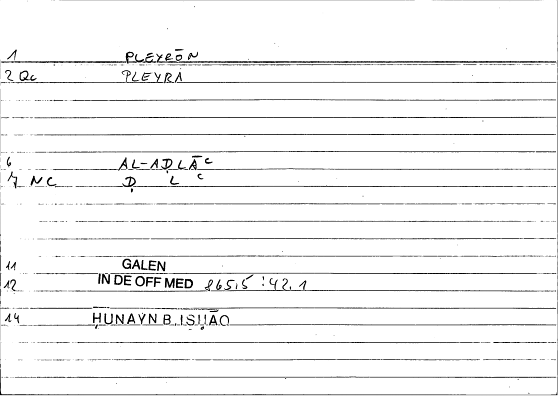 1 PLEYRŌN
2 Qc PLEYRA
6 AL-AḌLĀᶜ
7 NC Ḍ L ᶜ
11 GALEN
12 IN DE OFF MED 865,5 : 42.1
14 ḤUNAYN B. ISḤĀQ